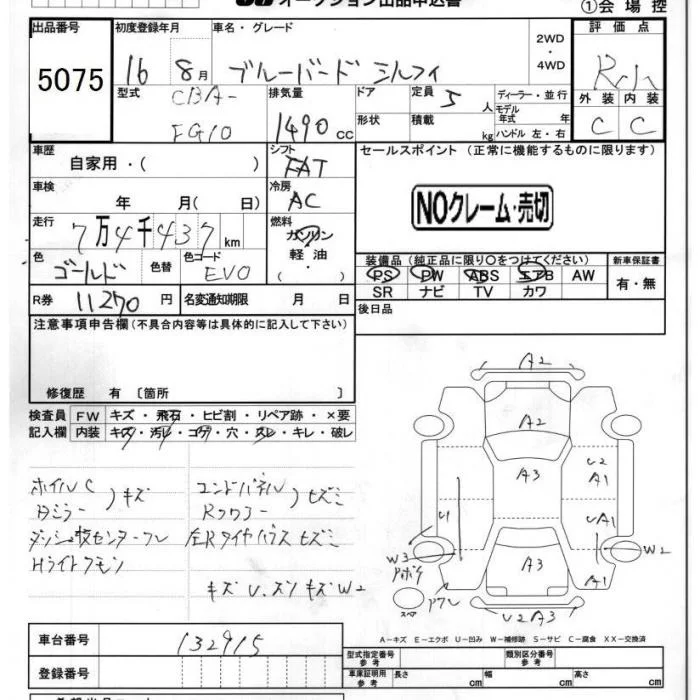 オークション出品申込書
①会場控
出品番号 初度登録年月 車名・グレード 評価点
5075 16 8月 ブルーバード シルフィ 2WD・4WD
型式 CBA- 排気量 ドア 定員 5人 ディーラー・並行 外装 内装
FG10 1490cc 形状 積載 kg モデル年式 年 C C
ハンドル 左・右
車歴 シフト セールスポイント (正常に機能するものに限ります)
自家用・( ) FAT
車検 冷房
年 月( 日) AC NOクレーム・売切
走行 燃料
7万4千437km ガソリン
軽油
色 色替 色コード 装備品 (純正品に限り○をつけてください) 新車保証書
ゴールド EV0 PS PW ABS エアB AW 有・無
SR ナビ TV カワ
R券 11270円 名変通知期限 月 日 後日品
注意事項申告欄 (不具合内容等は具体的に記入して下さい)
修復歴 有 〔箇所 〕
検査員 FW キズ・飛石・ヒビ割・リペア跡・×要
記入欄 内装 キズ・汚レ・コゲ・穴・スレ・キレ・破レ
A2
A2
A3 U2 A1
ホイルC キズ
エンドパネル
U UA1
W3 W2
A3 A1
Hライトクモリ
キズ U.ズレ キズ W2
スペア
U2A3
A-キズ E-エクボ U-凹み W-補修跡 S-サビ C-腐食 XX-交換済
車台番号 132915 型式指定番号 参考 類別区分番号 参考
登録番号 車庫証明用 参考 長さ cm 幅 cm 高さ cm